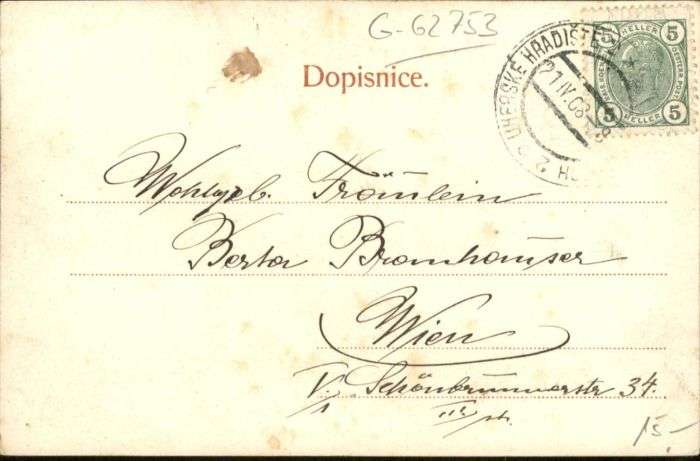 G-62753
Dopisnice.
UHERSKÉ HRADIŠTĚ
21 IV. 08
5 HELLER 5
5 HELLER 5
Wohlgeb. Fräulein
Berta Bromhäuser
Wien
V/1 Schönbrunnerstr 34.
15.-